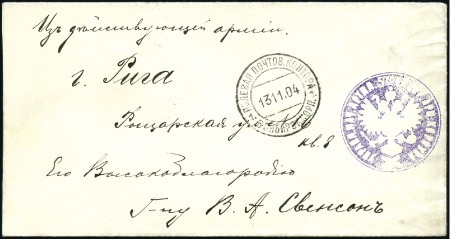 Изъ дѣйствующей арміи.
г. Рига
ПОЛЕВАЯ ПОЧТОВ. КОНТОРА
13 11 04
кв. 8
Его Высокоблагородію
Г-ну В. А. Свенсонъ